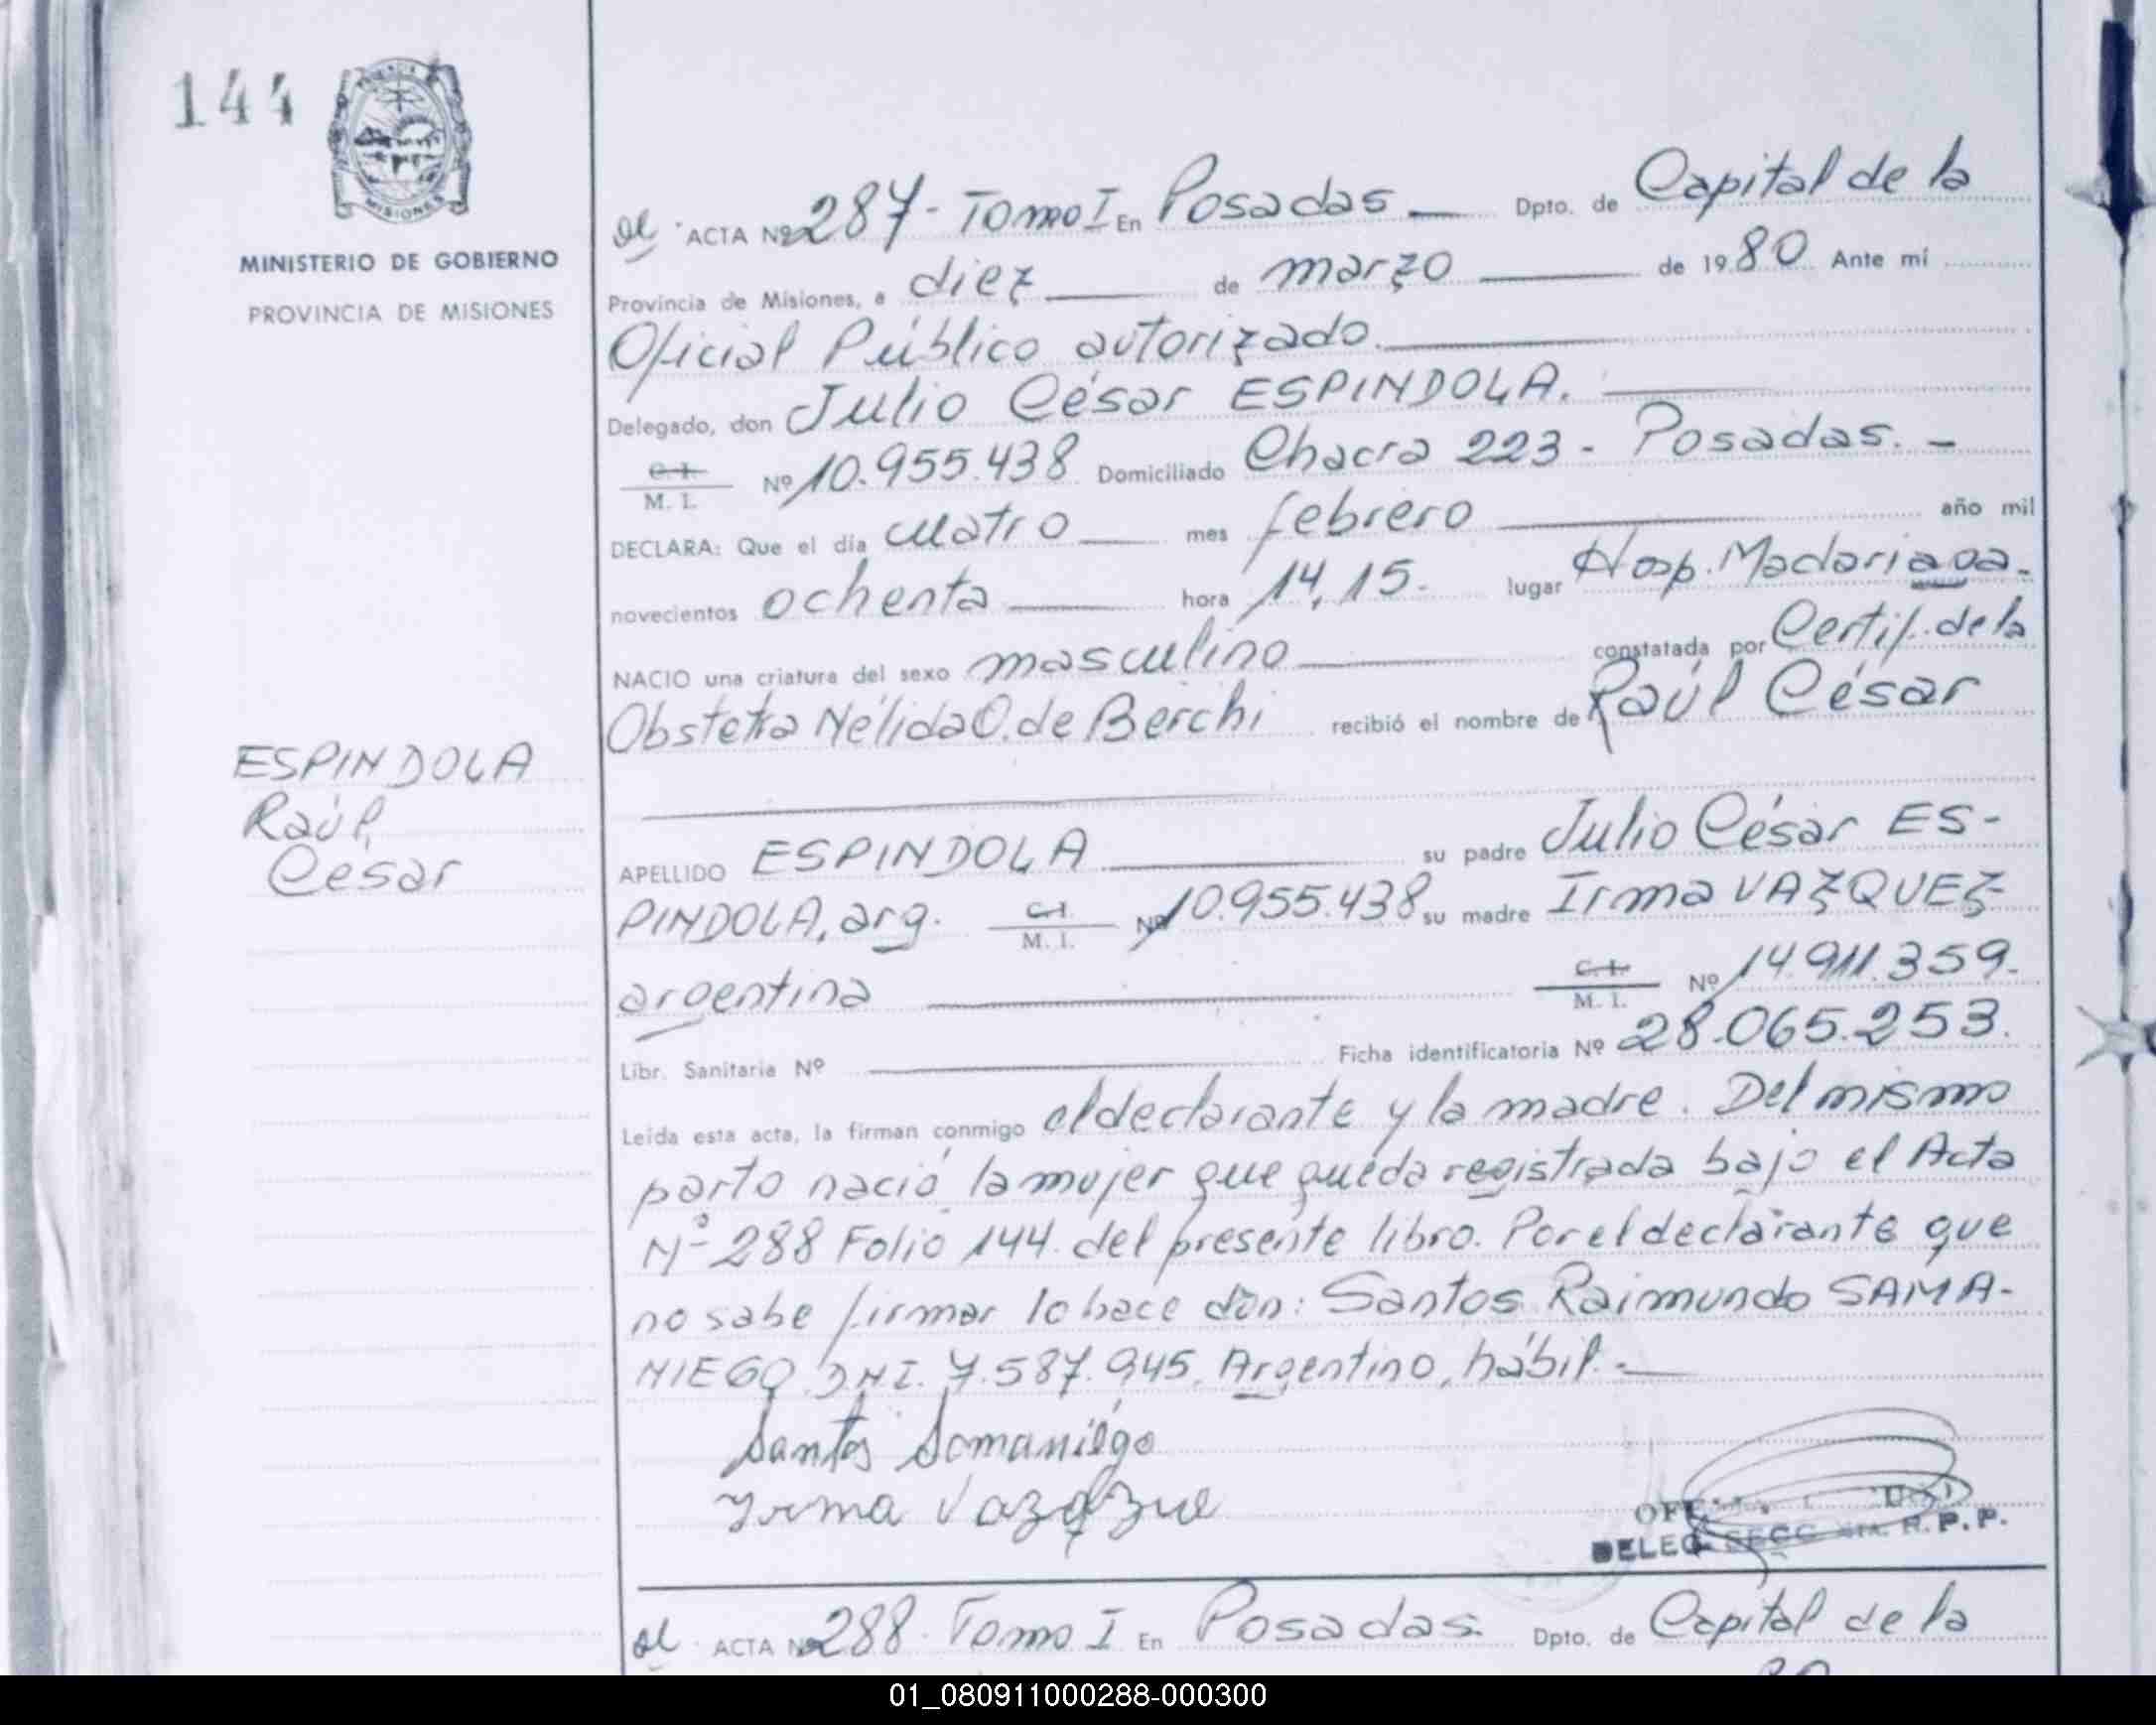 144
PROVINCIA
MISIONES
MINISTERIO DE GOBIERNO
PROVINCIA DE MISIONES
ESPINDOLA
Raúl
César
ACTA Nº 287 - Tomo I En Posadas Dpto. de Capital de la
Provincia de Misiones, a diez de marzo de 1980 Ante mí
Oficial Público autorizado.
Delegado, don Julio César ESPINDOLA.
C. I.
M. I. Nº 10.955.438 Domiciliado Chacra 223 - Posadas. -
DECLARA: Que el día cuatro mes febrero año mil
novecientos ochenta hora 14,15. lugar Hosp. Madariaga.
NACIO una criatura del sexo masculino constatada por Certif. de la
Obstetra Nélida O. de Berchi recibió el nombre de Raúl César
APELLIDO ESPINDOLA su padre Julio César ES-
PINDOLA, arg. C. I. M. I. Nº 10.955.438 su madre Irma VAZQUEZ
argentina C. I. M. I. Nº 14.911.359.
Libr. Sanitaria Nº Ficha identificatoria Nº 28.065.253.
Leída esta acta, la firman conmigo el declarante y la madre. Del mismo
parto nació la mujer que queda registrada bajo el Acta
Nº 288 Folio 144. del presente libro. Por el declarante que
no sabe firmar lo hace don: Santos Raimundo SAMA-
NIEGO. DNI. 7.587.945. Argentino, hábil. -
Santos Samaniego
Yrma Vazqzue
DELEG. SECC. R. P. P.
ACTA Nº 288. Tomo I En Posadas. Dpto. de Capital de la
01_080911000288-000300